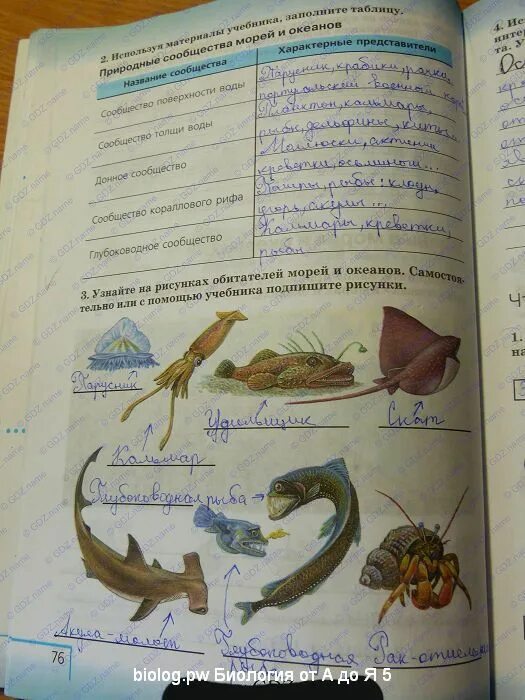 2. Используя материалы учебника, заполните таблицу.
Природные сообщества морей и океанов
Название сообщества
Характерные представители
Сообщество поверхности воды
Парусник, крабики, рачки,
португальский военный кора
Сообщество толщи воды
Планктон, кальмары,
рыбы, дельфины, киты
Донное сообщество
Моллюски, актинии
креветки, осьминоги...
Сообщество кораллового рифа
рыбы: клоун,
акулы...
Глубоководное сообщество
Кальмары, креветки,
рыбы
3. Узнайте на рисунках обитателей морей и океанов. Самостоя-
тельно или с помощью учебника подпишите рисунки.
Парусник
Удильщик
Скат
Кальмар
Глубоководная рыба
Акула-молот
Глубоководная
Рак-отшельн
76
4. Ис
инте
та. У
1.
на
© GDZ.name
biolog.pw Биология от А до Я 5